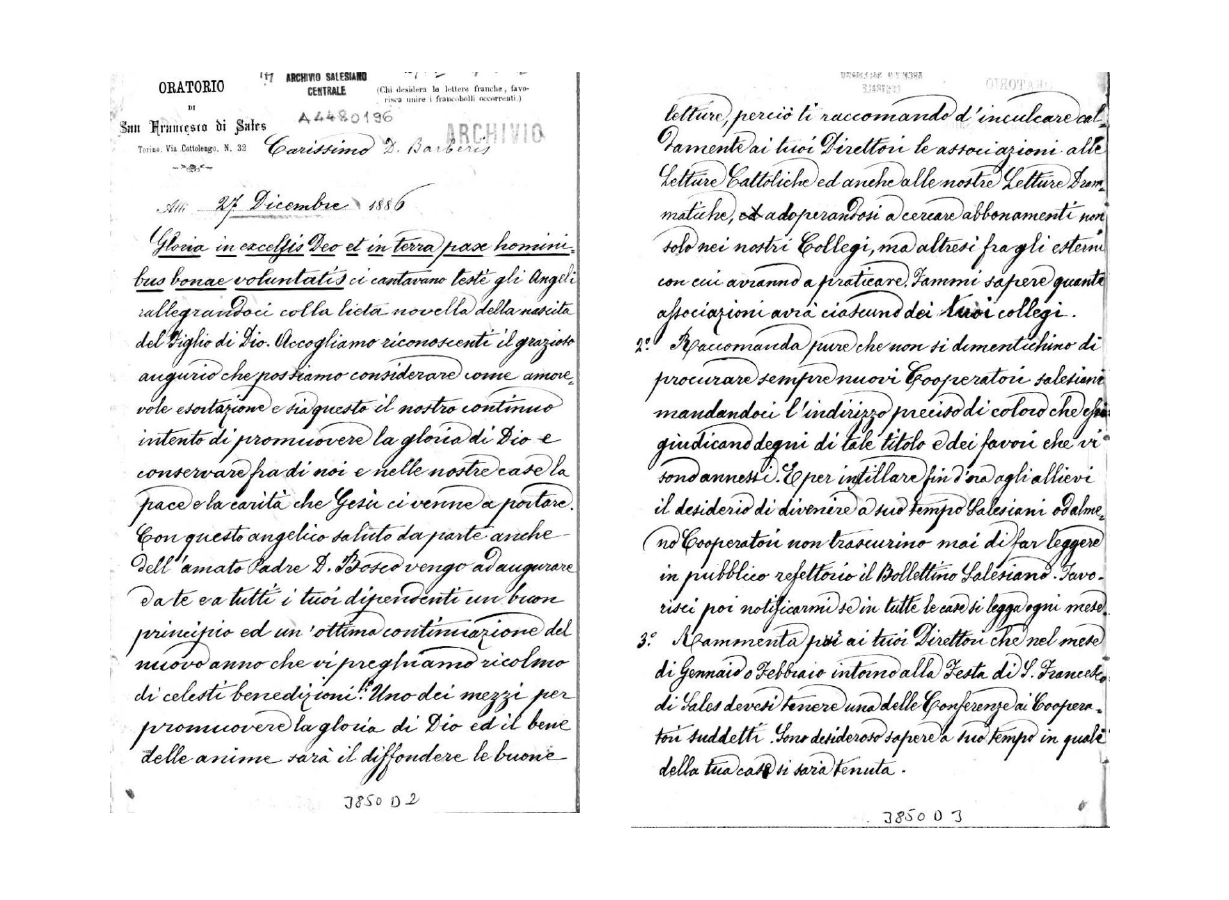 ORATORIO
DI
San Francesco di Sales
Torino, Via Cottolengo, N. 32
ARCHIVIO SALESIANO
CENTRALE
(Chi desidera le lettere franche, favo-
risca unire i francobolli occorrenti.)
A4480196
ARCHIVIO
Carissimo D. Barberis
Alli 27 Dicembre 1886
Gloria in excelsis Deo et in terra pax homini-
bus bonae voluntatis ci cantavano testè gli Angeli
rallegrandoci colla lieta novella della nascita
del Figlio di Dio. Accogliamo riconoscenti il grazioso
augurio che possiamo considerare come amore-
vole esortazione e sia questo il nostro continuo
intento di promuovere la gloria di Dio e
conservare fra di noi e nelle nostre case la
pace e la carità che Gesù ci venne a portare.
Con questo angelico saluto da parte anche
dell'amato Padre D. Bosco vengo ad augurare
a te e a tutti i tuoi dipendenti un buon
principio ed un'ottima continuazione del
nuovo anno che vi preghiamo ricolmo
di celesti benedizioni. Uno dei mezzi per
promuovere la gloria di Dio ed il bene
delle anime sarà il diffondere le buone
3850 D 2
letture, perciò ti raccomando d'inculcare cal-
damente ai tuoi Direttori le associazioni alle
Letture Cattoliche ed anche alle nostre Letture Dram-
matiche, adoperandosi a cercare abbonamenti non
solo nei nostri Collegi, ma altresì fra gli esterni
con cui avranno a praticare. Fammi sapere quante
associazioni avrà ciascuno dei tuoi collegi.
2.° Raccomanda pure che non si dimentichino di
procurare sempre nuovi Cooperatori salesiani
mandandoci l'indirizzo preciso di coloro che essi
giudicano degni di tale titolo e dei favori che vi
sono annessi. E per instillare fin d'ora agli allievi
il desiderio di divenire a suo tempo Salesiani od alme-
no Cooperatori non trascurino mai di far leggere
in pubblico refettorio il Bollettino Salesiano. Favo-
risci poi notificarmi se in tutte le case si legga ogni mese.
3.° Rammenta poi ai tuoi Direttori che nel mese
di Gennaio o Febbraio intorno alla Festa di S. Francesco
di Sales devesi tenere una delle Conferenze ai Coopera-
tori suddetti. Sono desideroso sapere a suo tempo in quali
della tua case si sarà tenuta.
3850 D 3